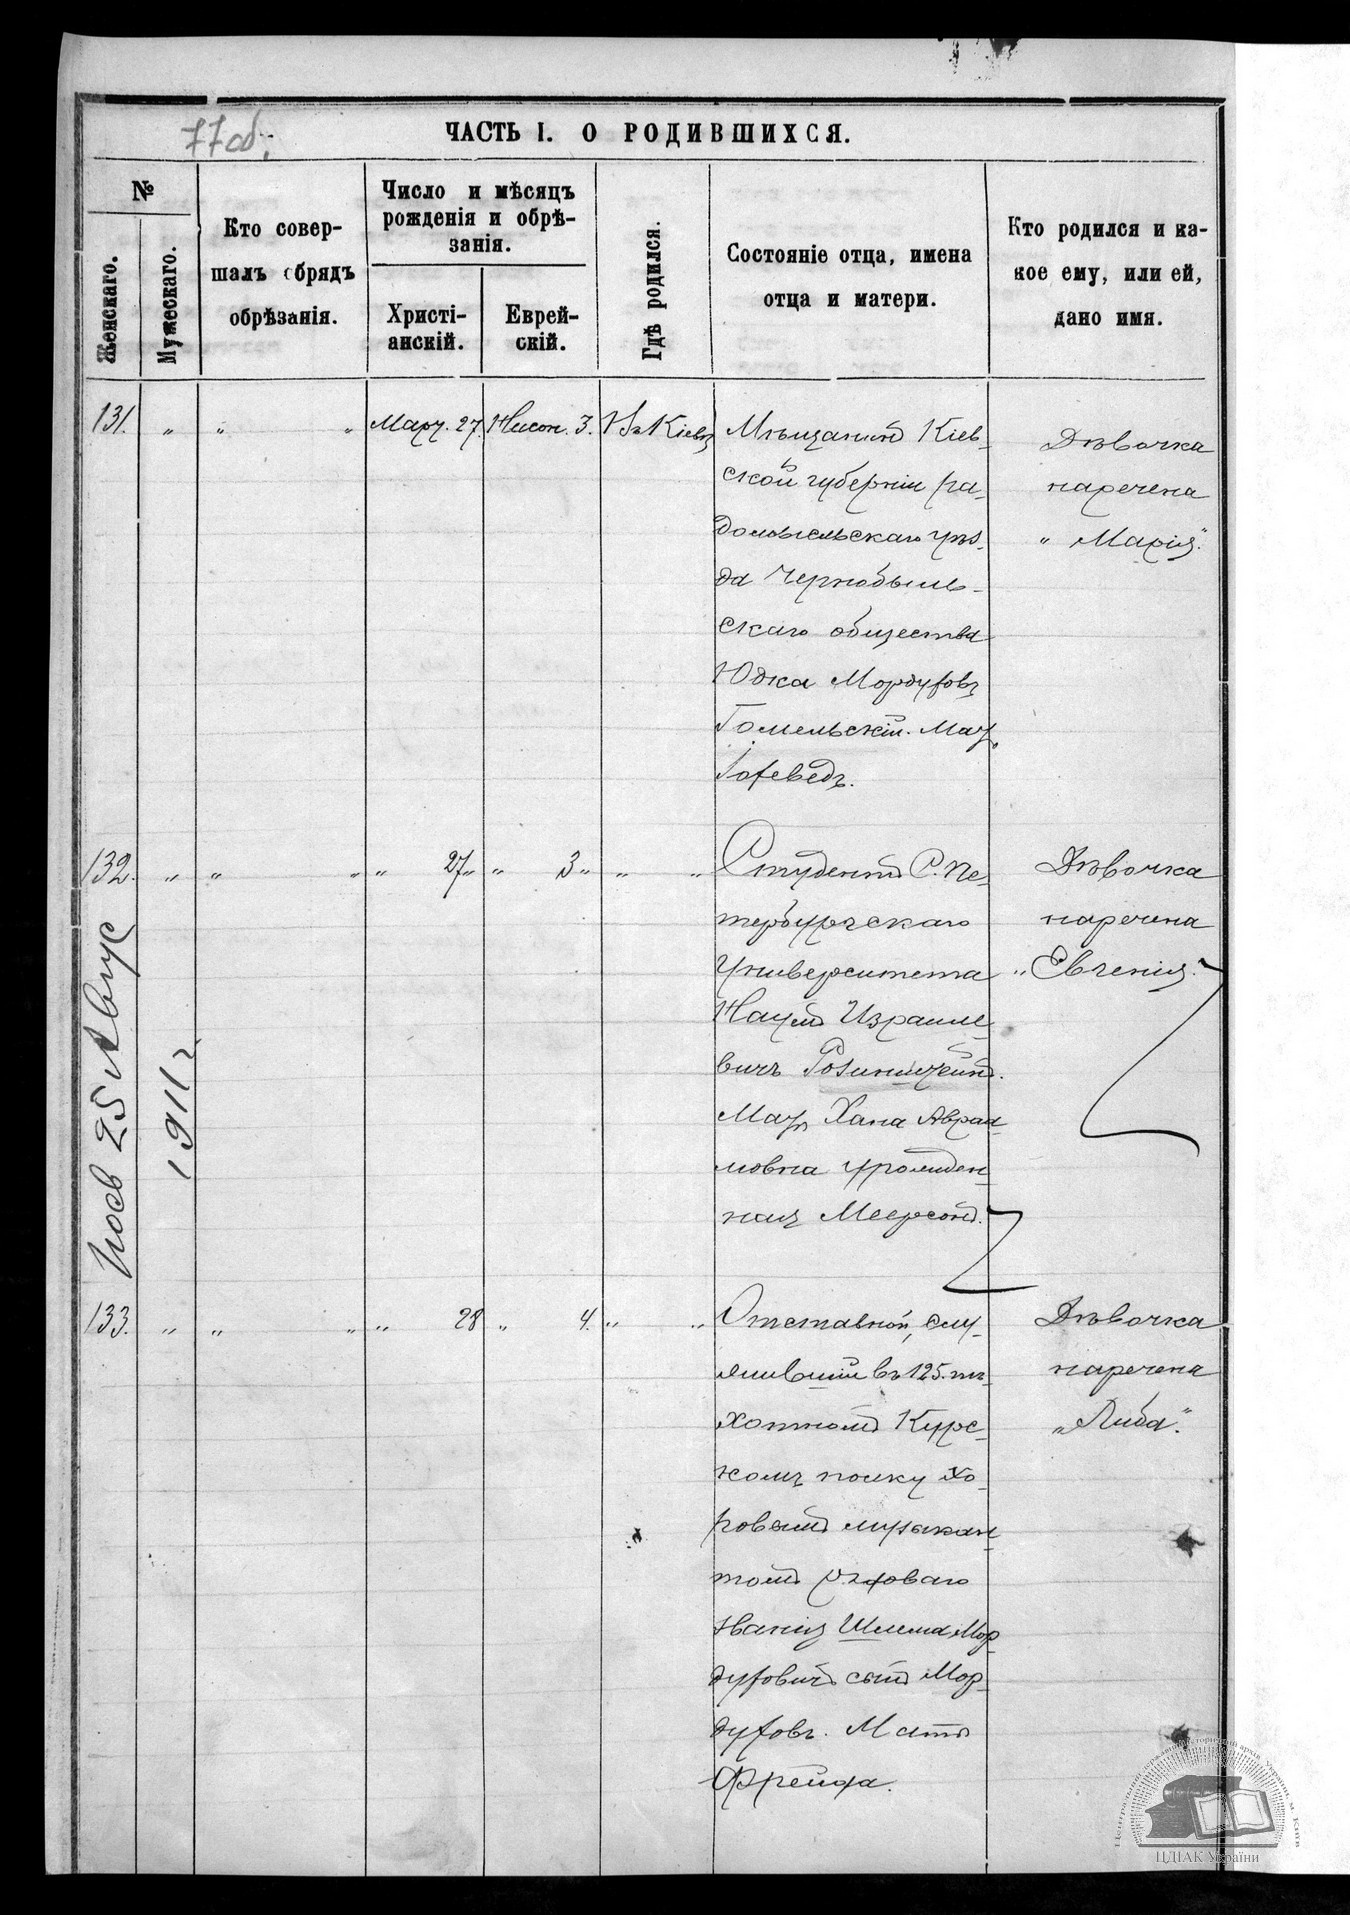 77об.
ЧАСТЬ I. О РОДИВШИХСЯ.
№
Женскаго.
Мужескаго.
Кто совер-
шалъ обрядъ
обрѣзанія.
Число и мѣсяцъ
рожденія и обрѣ-
занія.
Христі-
анскій.
Еврей-
скій.
Гдѣ родился.
Состояніе отца, имена
отца и матери.
Кто родился и ка-
кое ему, или ей,
дано имя.
131. " " " Март. 27. Нисон. 3. Въ Кіевѣ
Мѣщанинъ Кіев-
ской губерніи ра-
домысльскаго уѣз-
да Чернобыль-
скаго общества
Юдка Мордуховъ
Гомельскій. Мать
Іохеведъ.
Дѣвочка
наречена
"Марія."
132. " " " " 27 " " 3 " " "
Студентъ С. Пе-
тербургскаго
Университета
Наумъ Израиле-
вичъ
Мать Хана Авраа-
мовна урожден-
ная Меерсонъ.
Дѣвочка
наречена
"Евгенія."
25 Авгус
1911 г.
133. " " " " 28 " 4. " "
Отставной, слу-
жившій въ 125. пѣ-
хотномъ Курс-
комъ полку хо-
ровымъ музыкан-
томъ рядоваго
званія Шлема Мор-
духовичъ сынъ Мор-
духовъ. Мать
Фрейда.
Дѣвочка
наречена
"Либа".
Центральний державний історичний архів України, м. Київ
ЦДІАК України